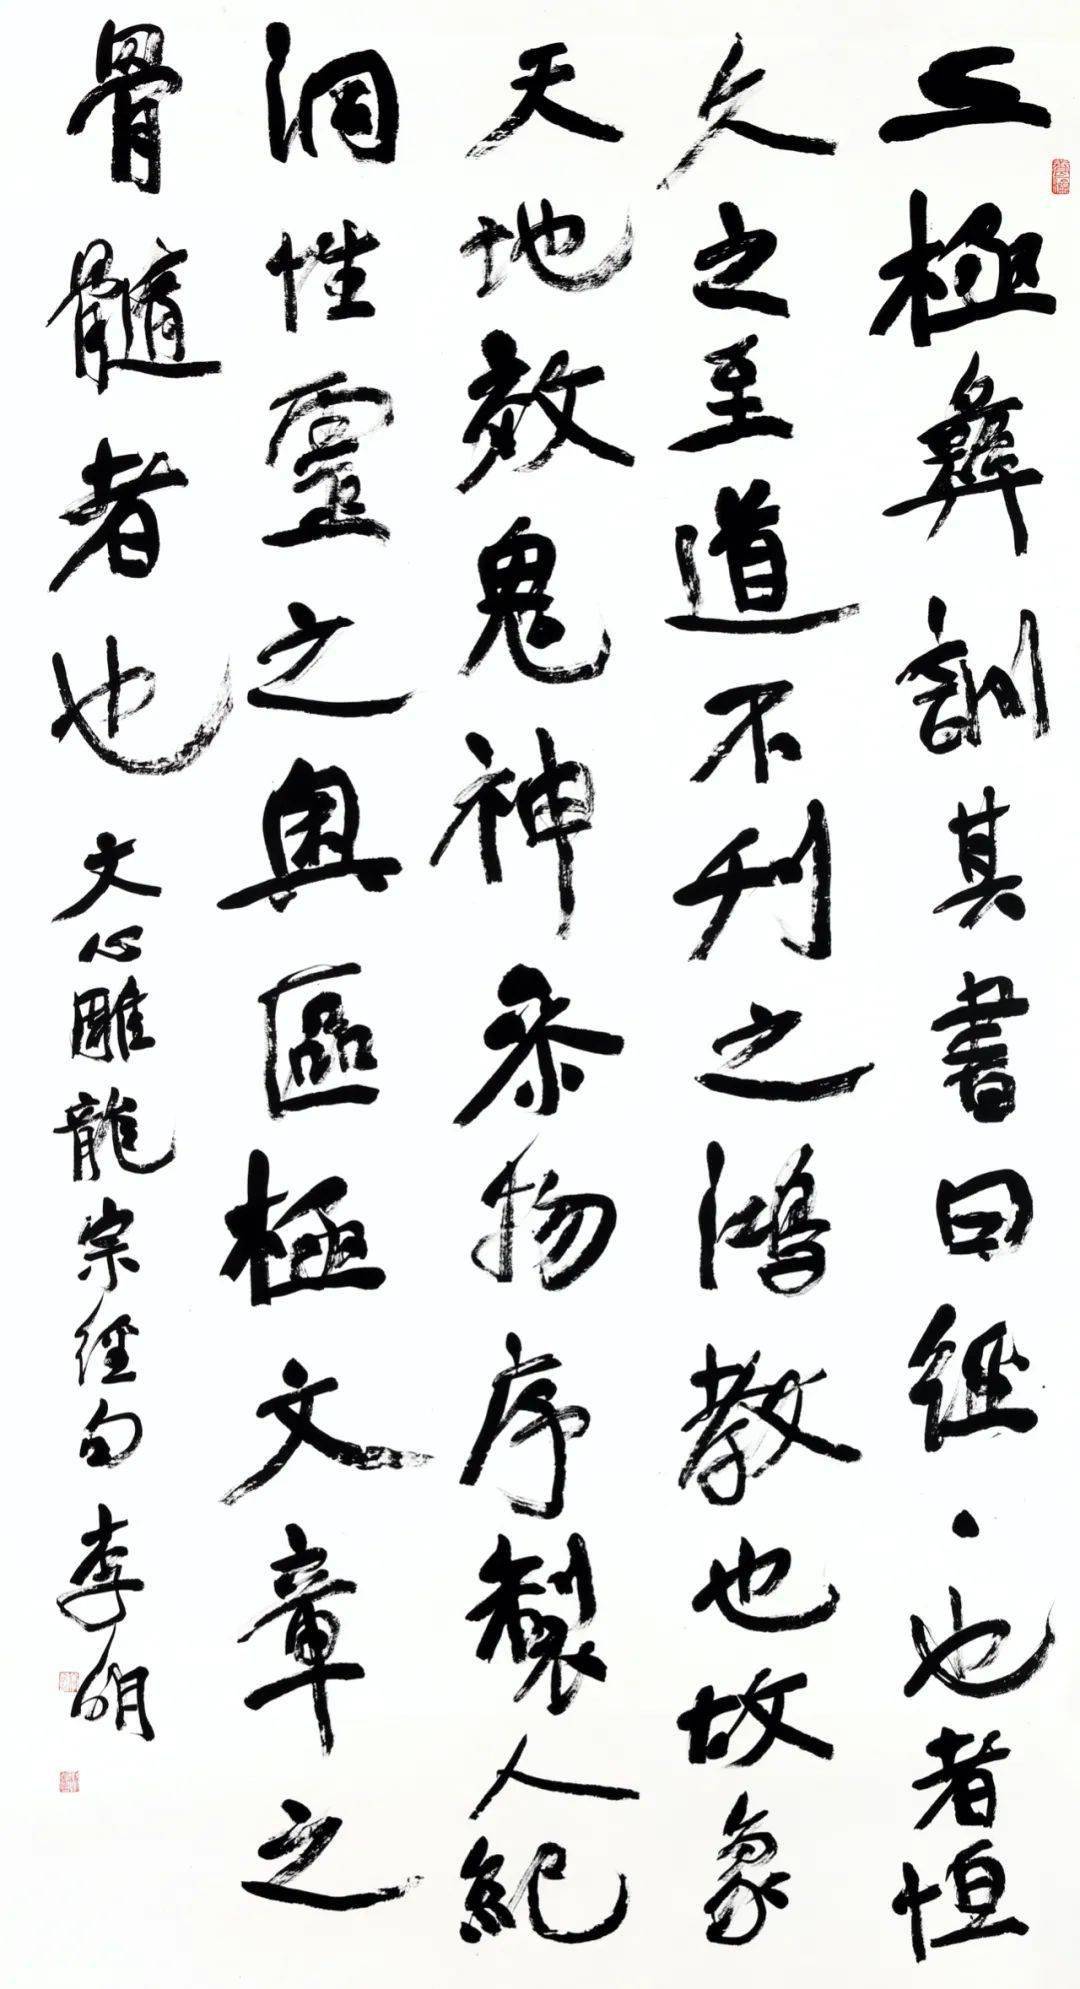 三極彝訓其書曰經丶也者恒
久之至道不刊之鴻教也故象
天地效鬼神參物序製人紀
洞性靈之奧區極文章之
骨髓者也 文心雕龍宗經句 李明